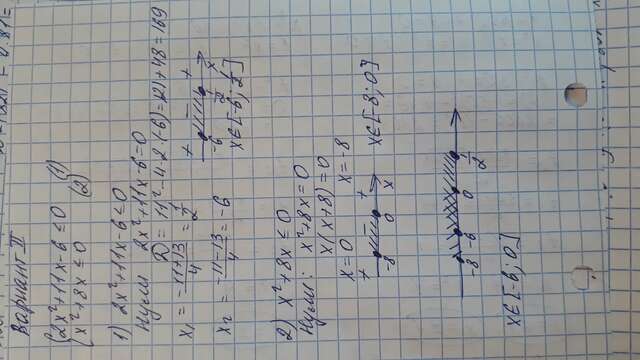 Вариант II
{2x²+11x-6≤0 (1)
{x²+8x≤0 (2)
1) 2x²+11x-6≤0
Нули 2x²+11x-6=0
D=11²-4·2·(-6)=121+48=169
x₁=-11+13/4=1/2
x₂=-11-13/4=-6
+ - +
-6 1/2 x
x∈[-6; 1/2]
2) x²+8x≤0
Нули: x²+8x=0
x(x+8)=0
x=0 x=-8
+ - +
-8 0 x
x∈[-8; 0]
-8 -6 0 1/2
x∈[-6; 0]